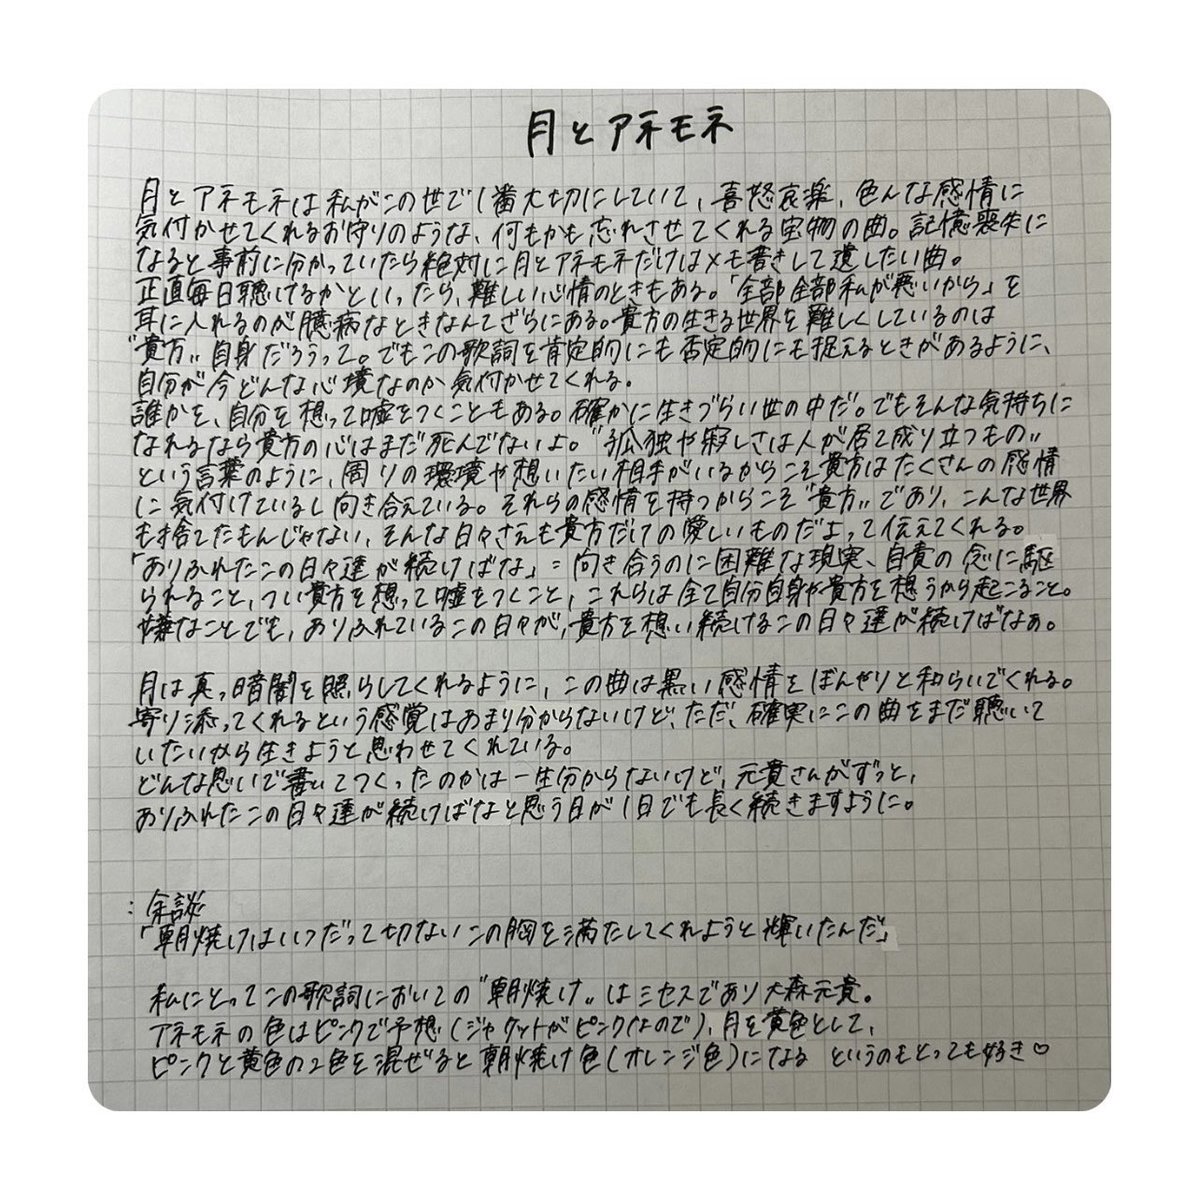 月とアネモネ
月とアネモネは私がこの世で1番大切にしていて、喜怒哀楽、色んな感情に
気付かせてくれるお守りのような、何もかも忘れさせてくれる宝物の曲。記憶喪失に
なると事前に分かっていたら絶対に月とアネモネだけはメモ書きして遺したい曲。
正直毎日聴けるかといったら、難しい心情のときもある。「全部全部私が悪いから」を
耳に入れるのが臆病なときなんてざらにある。貴方の生きる世界を難しくしているのは
"貴方"自身だろうって。でもこの歌詞を肯定的にも否定的にも捉えるときがあるように、
自分が今どんな心境なのか気付かせてくれる。
誰かを、自分を想って嘘をつくこともある。確かに生きづらい世の中だ。でもそんな気持ちに
なれるなら貴方の心はまだ死んでないよ。"孤独や寂しさは人が居て成り立つもの"
という言葉のように、周りの環境や想いたい相手がいるからこそ貴方はたくさんの感情
に気付けているし向き合えている。それらの感情を持つからこそ"貴方"であり、こんな世界
も捨てたもんじゃない、そんな日々さえも貴方だけの愛しいものだよって伝えてくれる。
「ありふれたこの日々達が続けばな」=向き合うのに困難な現実、自責の念に駆
られること、つい貴方を想って嘘をつくこと、これらは全て自分自身や貴方を想うから起こること。
嫌なことでも、ありふれているこの日々が、貴方を想い続けるこの日々達が続けばなぁ。
月は真っ暗闇を照らしてくれるように、この曲は黒い感情をぼんやりと和らいでくれる。
寄り添ってくれるという感覚はあまり分からないけど、ただ、確実にこの曲をまだ聴いて
いたいから生きようと思わせてくれている。
どんな思いで書いてつくったのかは一生分からないけど、元貴さんがずっと、
ありふれたこの日々達が続けばなと思う日が1日でも長く続きますように。
:余談
「朝焼けはいつだって切ないこの胸を満たしてくれようと輝いたんだ」
私にとってこの歌詞においての"朝焼け"はミセスであり大森元貴。
アネモネの色はピンクで予想(ジャケットがピンクなので)、月を黄色として、
ピンクと黄色の2色を混ぜると朝焼け色(オレンジ色)になる というのもとっても好き♡